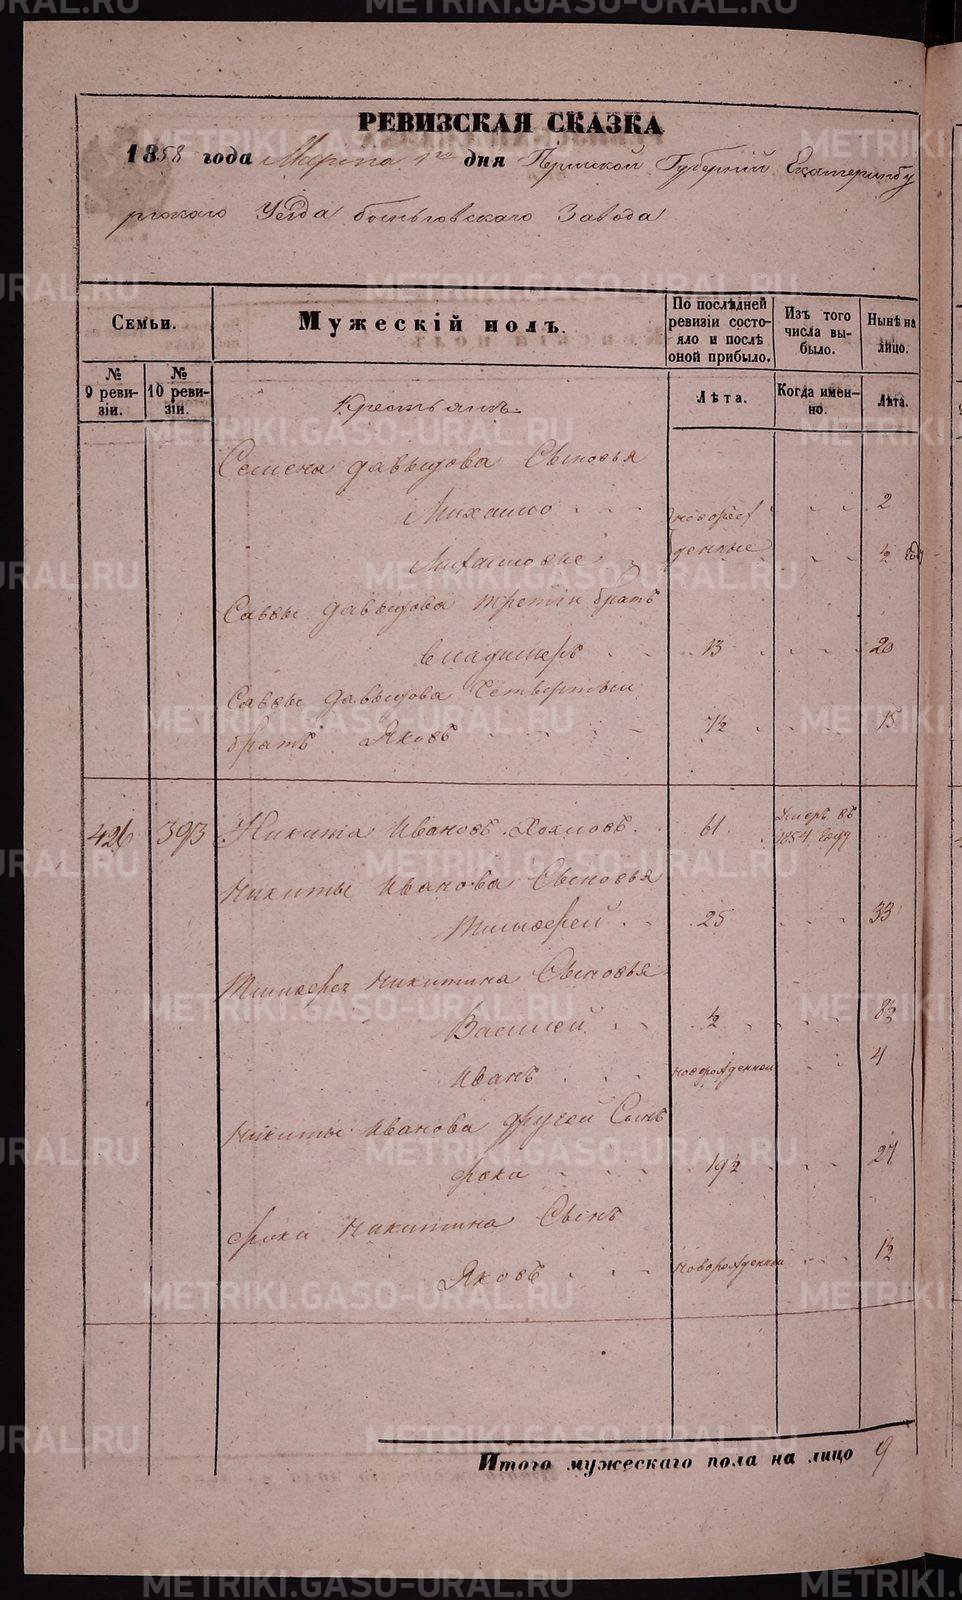 РЕВИЗСКАЯ СКАЗКА
1858 года Марта 1го дня Пермской Губернiи Екатеринбу
ргскаго Уезда Быньговскаго Завода
Семьи.
Мужескiй полъ.
По послѣдней ревизiи состояло и послѣ оной прибыло.
Изъ того числа выбыло.
Нынѣ на лицо.
№ 9 ревизiи.
№ 10 ревизiи.
Лѣта.
Когда именно.
Лѣта.
Крестьянъ
Семена Давыдова Сыновья
Михаило новорож 2
денные ½ году
Саввы Давыдова третiй братъ
Владимеръ 13 20
Саввы Давыдова Четвертый
братъ Яковъ 7½ 15
426 393 Никита Ивановъ Холмовъ 61 Умеръ въ 1854 году
Никиты Иванова Сыновья
Тимофей 25 33
Тимофея Никитина Сыновья
Василей ½ 8½
Иванъ новорожденной 4
Никиты Иванова другой Сынъ
Фока 19½ 27
Фоки Никитина Сынъ
Яковъ новорожденной 1½
Итого мужескаго пола на лицо 9
METRIKI.GASO-URAL.RU